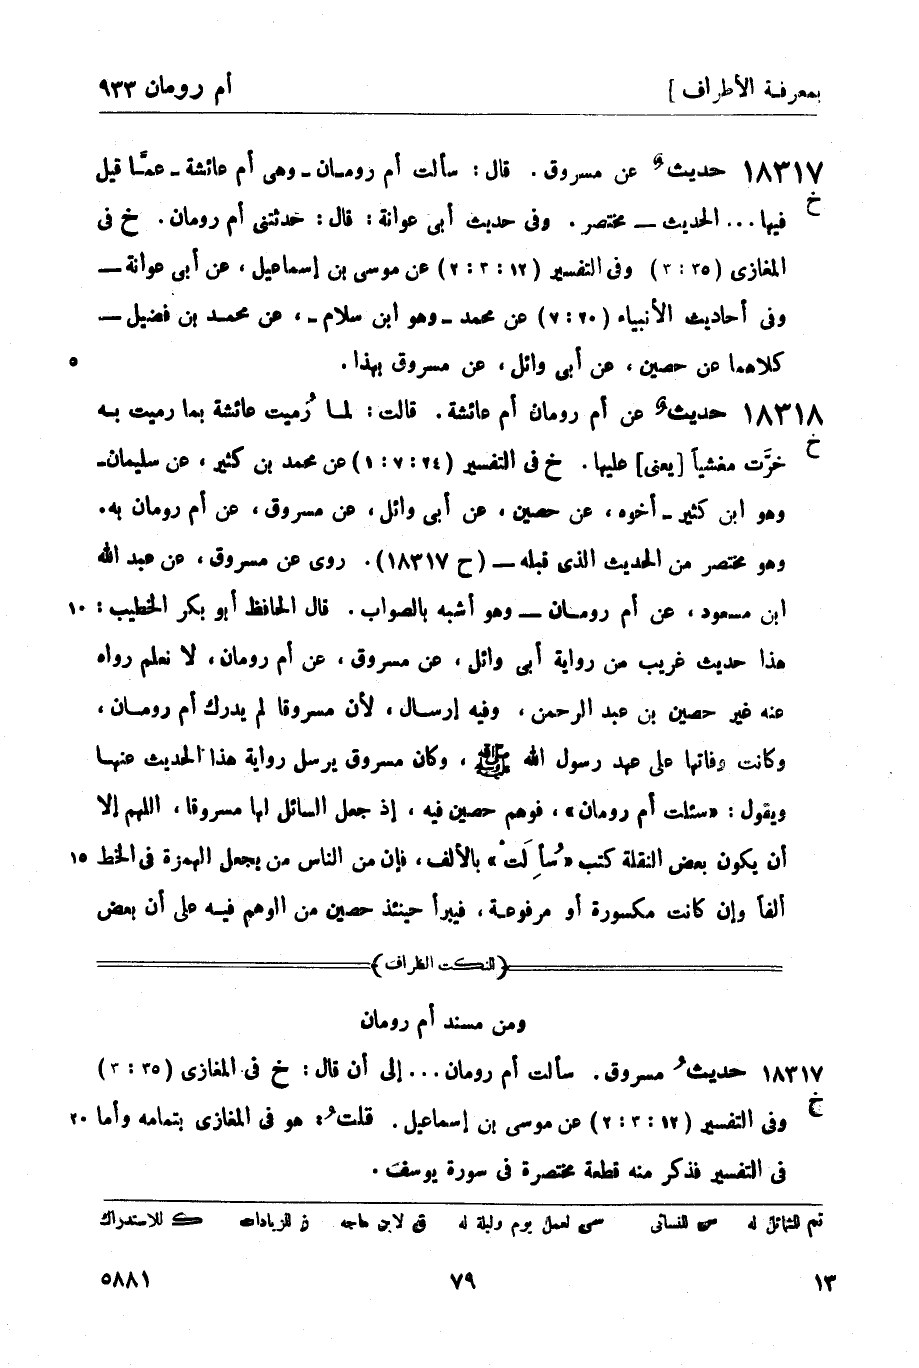 بمعرفة الأطراف ] أم رومان ٩٣٣
١٨٣١٧ حديث عن مسروق . قال : سألت أم رومـان ـ وهى أم عائشة ـ عمَّا قيل
خ فيها ... الحديث ــ مختصر . وفى حديث أبى عوانة : قال : حدثتنى أم رومان . خ فى
المغازى (٣٥ : ٣) وفى التفسير (١٢ : ٣ : ٢) عن موسى بن إسماعيل ، عن أبى عوانة ــ
وفى أحاديث الأنبياء (٢٠ : ٧) عن محمد ـ وهو ابن سلام ـ ، عن محمـد بن فضيل ــ
كلاهما عن حصين ، عن أبى وائل ، عن مسروق بهذا . ٥
١٨٣١٨ حديث عن أم رومان أم عائشة . قالت : لمـا رُميت عائشة بما رميت بـه
خ خرَّت مغشياً [يعنى] عليها . خ فى التفسير (٢٤ : ٧ : ١) عن محمد بن كثير ، عن سليمان ـ
وهو ابن كثير ـ أخوه ، عن حصين ، عن أبى وائل ، عن مسروق ، عن أم رومان به .
وهو مختصر من الحديث الذى قبله ــ (ح ١٨٣١٧) . روى عن مسروق ، عن عبد الله
ابن مسعود ، عن أم رومـان ــ وهو أشبه بالصواب . قال الحافظ أبو بكر الخطيب : ١٠
هذا حديث غريب من رواية أبى وائل ، عن مسروق ، عن أم رومان ، لا نعلم رواه
عنه غير حصين بن عبد الرحمن ، وفيه إرسـال ، لأن مسروقا لم يدرك أم رومـان ،
وكانت وفاتها على عهد رسول الله ﷺ ، وكان مسروق يرسل رواية هذا الحديث عنهـا
ويقول : «سئلت أم رومان» ، فوهم حصين فيه ، إذ جعل السائل لها مسروقا ، اللهم إلا
أن يكون بعض النقلة كتب «سُأِلَتْ» بالألف ، فإن من الناس من يجعل الهمزة فى الخط ١٥
ألفاً وإن كانت مكسورة أو مرفوعـة ، فيبرأ حينئذ حصين من الوهم فيـه على أن بعض
(النكت الظراف)
ومن مسند أم رومان
١٨٣١٧ حديثُ مسروق . سألت أم رومان ... إلى أن قال : خ فى المغازى (٣٥ : ٣)
خ وفى التفسير (١٢ : ٣ : ٢) عن موسى بن إسماعيل . قلتُ : هو فى المغازى بتمامه وأما ٢٠
فى التفسير فذكر منه قطعة مختصرة فى سورة يوسف .
تم للشمائل له س للنسائى سى لعمل يوم وليلة له ق لابن ماجه ز للزيادات ك للاستدراك
١٣ ٧٩ ٥٨٨١